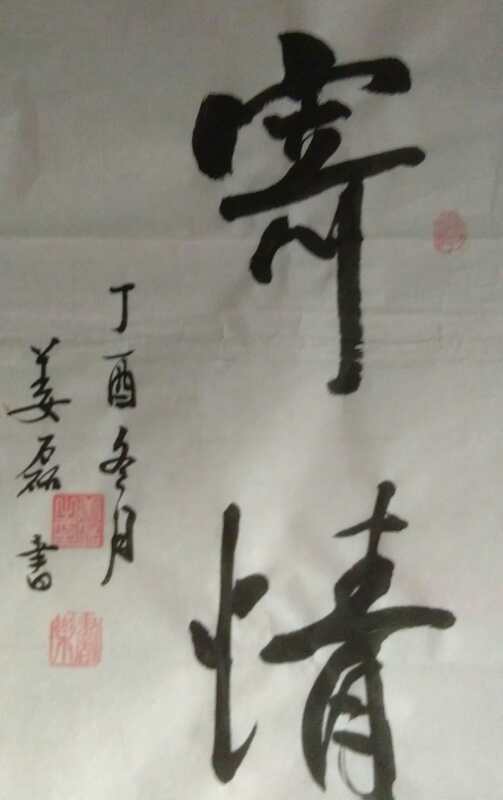 寄情
丁酉冬月
姜磊书